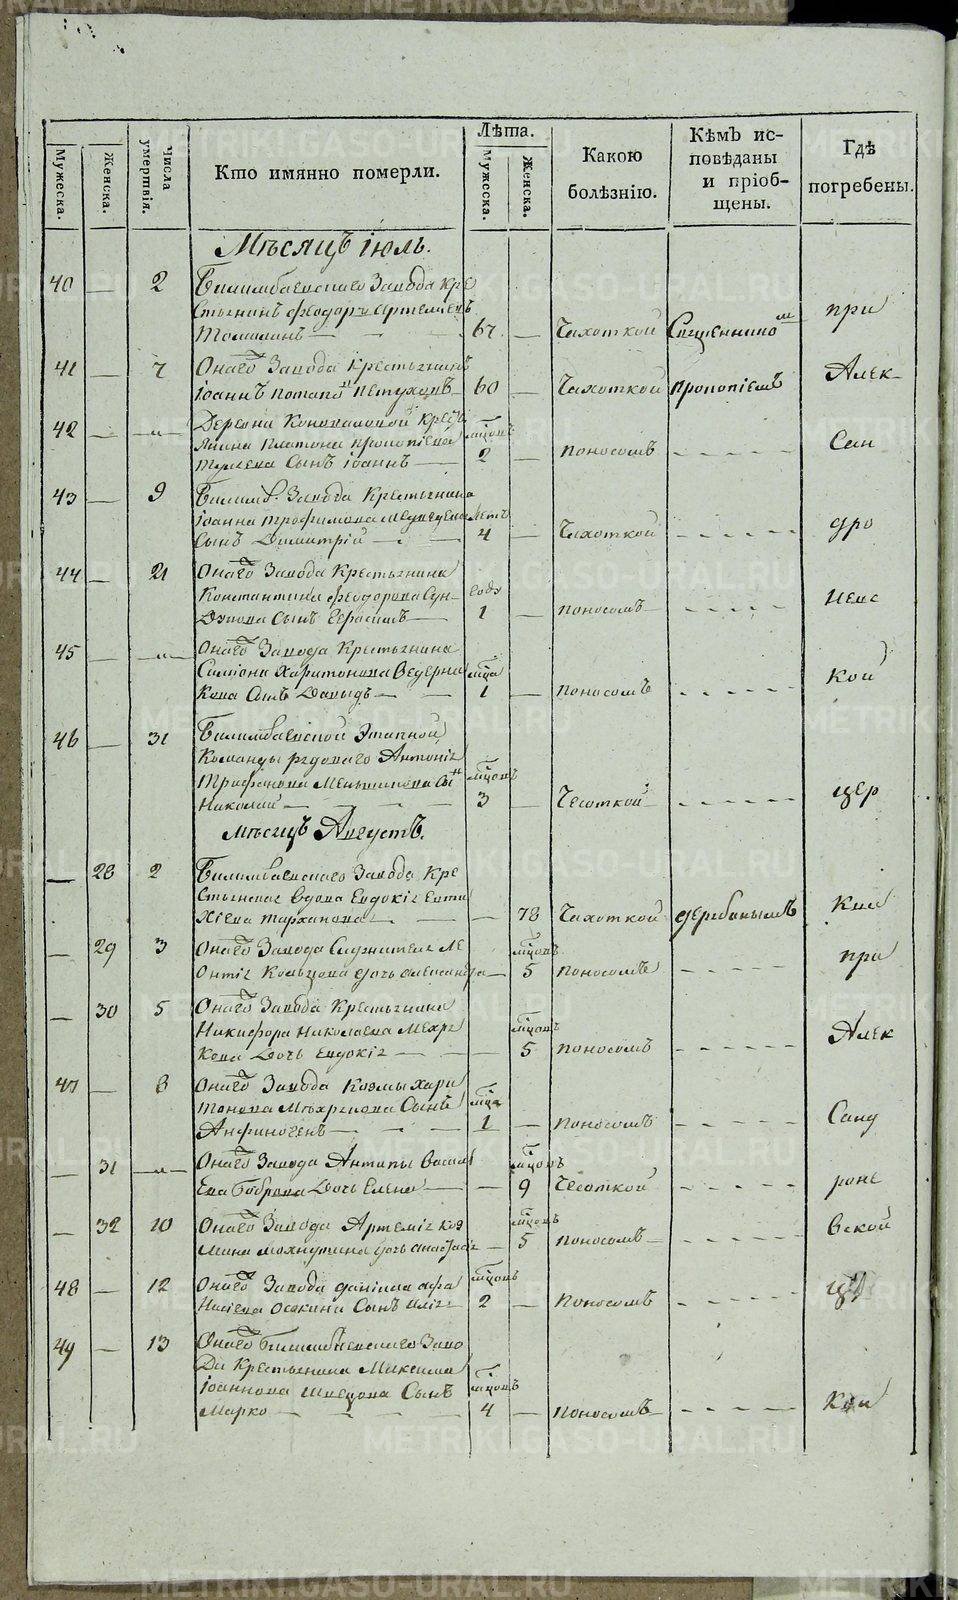 Мужеска.
Женска.
Числа умертвія.
Кто имянно померли.
Лѣта.
Мужеска.
Женска.
Какою болѣзнію.
Кѣмъ исповѣданы и пріобщены.
Гдѣ погребены.
Мѣсяцъ іюль.
40 — 2 Билимбаевскаго Завода Кре
стьянинъ Феодоръ Артемьевъ
67 — Чахоткой Священнико
при
41 — 7 Онаго Завода Крестьянинъ
Іоаннъ Потаповъ Петуховъ 60 — Чахоткой Прокопіемъ
Алек-
42 — „ Деревни Коноваловой Крестьянина Платона Прокопіева
сынъ Іоаннъ — мцовъ 2 — поносомъ - - - -
Сан
43 — 9 Билимб. Завода Крестьянина
Іоанна Трофимова
сынъ Димитрій — летъ 4 — Чахоткой - - - -
дро
44 — 21 Онаго Завода Крестьянина
Константина Феодорова Сун-
сынъ Герасимъ — годъ 1 — поносомъ - - - -
невс
45 — „ Онаго Завода Крестьянина
Симеона Харитонова Ведерни
кова сынъ Давыдъ — мца 1 — поносомъ - - - -
кой
46 — 31 Билимбаевской Этапной
Команды рядоваго Антонія
Трифонова Меньшикова сынъ
Николай — мцовъ 3 — Чесоткой - - - -
цер
Мѣсяцъ Августъ.
— 28 2 Билимбаевскаго Завода Кре
стьянская вдова Евдокія Евти
хіева Тарханова — 78 Чахоткой
кви
— 29 3 Онаго Завода Служителя Ле
онтія Кольцова дочь Александра — мцовъ 5 поносомъ - - - -
при
— 30 5 Онаго Завода Крестьянина
Никифора Николаева Мехря
кова дочь Евдокія — мцовъ 5 поносомъ - - - -
Алек
47 — 8 Онаго Завода Козмы Хари
тонова Мехрякова сынъ
Анфиногенъ — мца 1 — поносомъ - - - -
Санд
— 31 „ Онаго Завода Антипы Василь
ева Боброва дочь Елена — мцовъ 9 Чесоткой - - - -
роне
— 32 10 Онаго Завода Артемія Коз
мина Махнутина дочь Анастасія — мцовъ 5 поносомъ - - - -
вской
48 — 12 Онаго Завода Даніила Афа
насіева Осокина сынъ Илія мцовъ 2 — поносомъ - - - -
цер
49 — 13 Онаго Билимбаевскаго Заво
да Крестьянина Максима
Іоаннова Швецова сынъ
Марко — мцовъ 4 — поносомъ - - - -
кви
METRIKI.GASO-URAL.RU